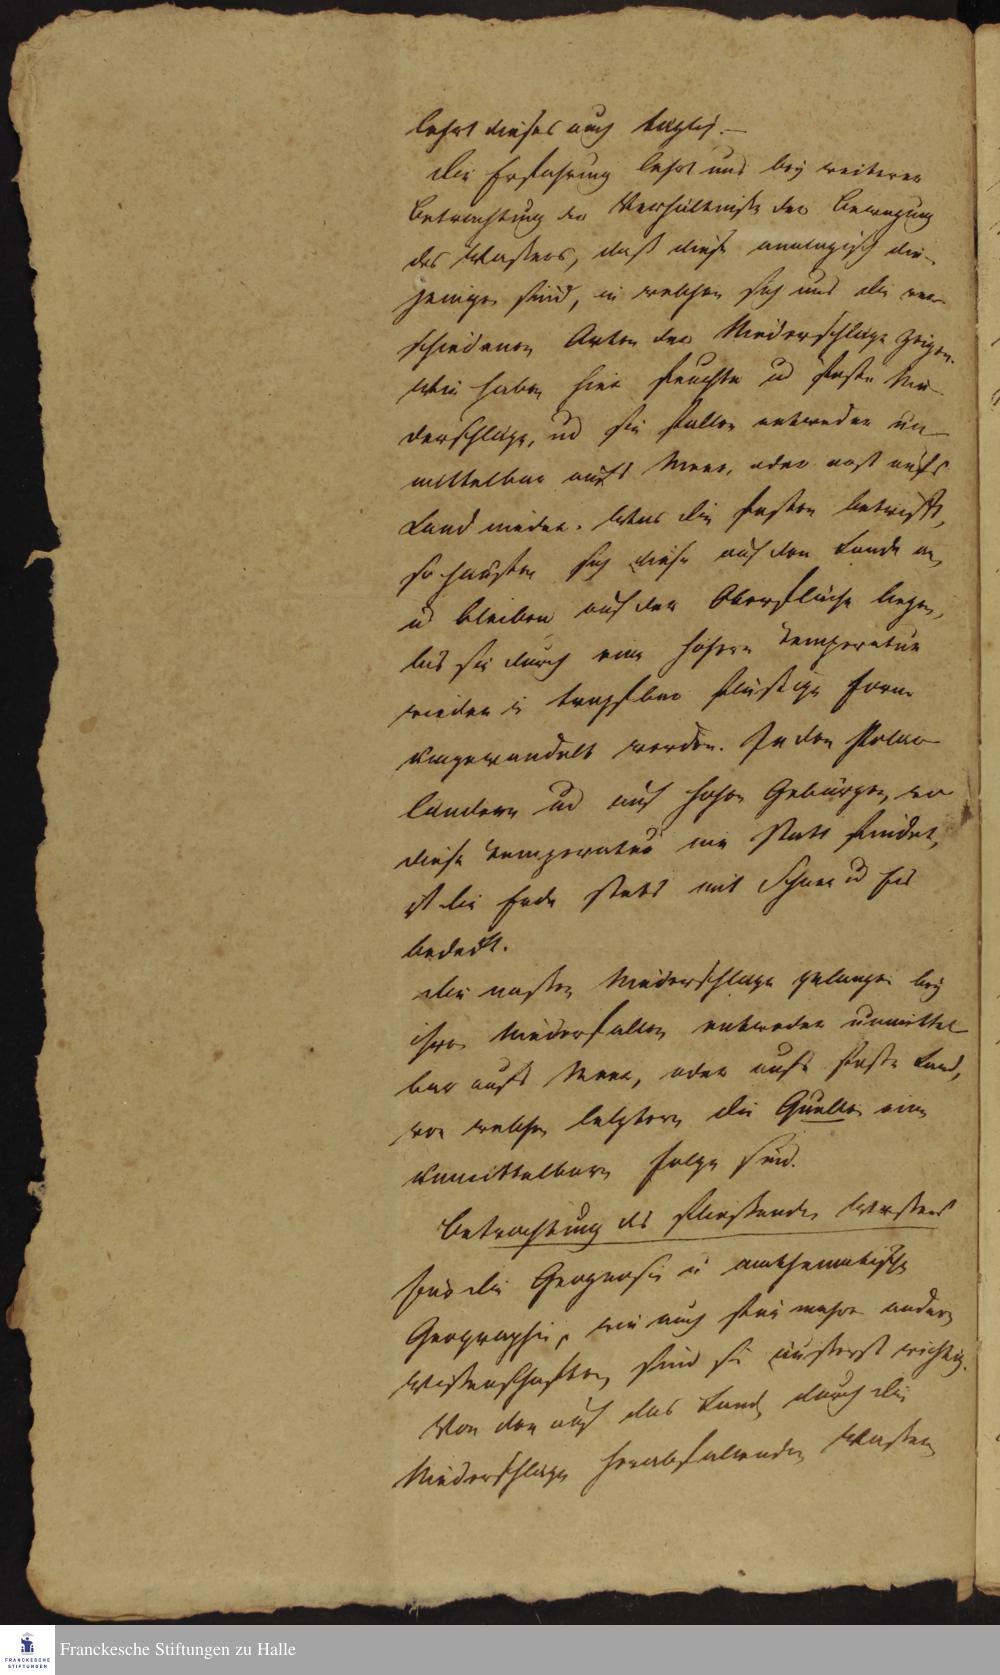 lehrt dieses auch täglich. —
Die Erfahrung lehrt uns bey weiterer
Betrachtung der Verhältniße der Bewegung
des Waßers, daß diese analogisch die-
jenigen sind, in welchen sich uns die ver-
schiedenen Arten der Niederschläge zeigen.
Wir haben hier feuchte ud feste Nie-
derschläge, ud sie fallen entweder un-
mittelbar aufs Meer, oder erst aufs
Land nieder. Was die festen betrifft,
so häufen sich diese auf dem Lande an,
u bleiben auf der Oberfläche liegen,
bis sie durch eine höhere Temperatur
wieder in tropfbar flüßige Form
umgewandelt werden. In den Polar-
ländern ud auf hohen Gebürgen, wo
diese Temperatur nie statt findet,
ist die Erde stets mit Schnee ud Eis
bedeckt.
Die naßen Niederschläge gelangen bey
ihren Niederfallen entweder unmittel-
bar aufs Meer, oder aufs feste Land,
von welchen letztern die Quellen eine
unmittelbare Folge sind.
Betrachtung des fließenden Waßers
Für die Geognosie u mathematische
Geographie, wie auch für mehre andere
Wißenschaften, sind sie äußerst wichtig.
Von den auf das Land durch die
Niederschläge herabfallenden Waßer
Franckesche Stiftungen zu Halle
FRANCKESCHE
STIFTUNGEN